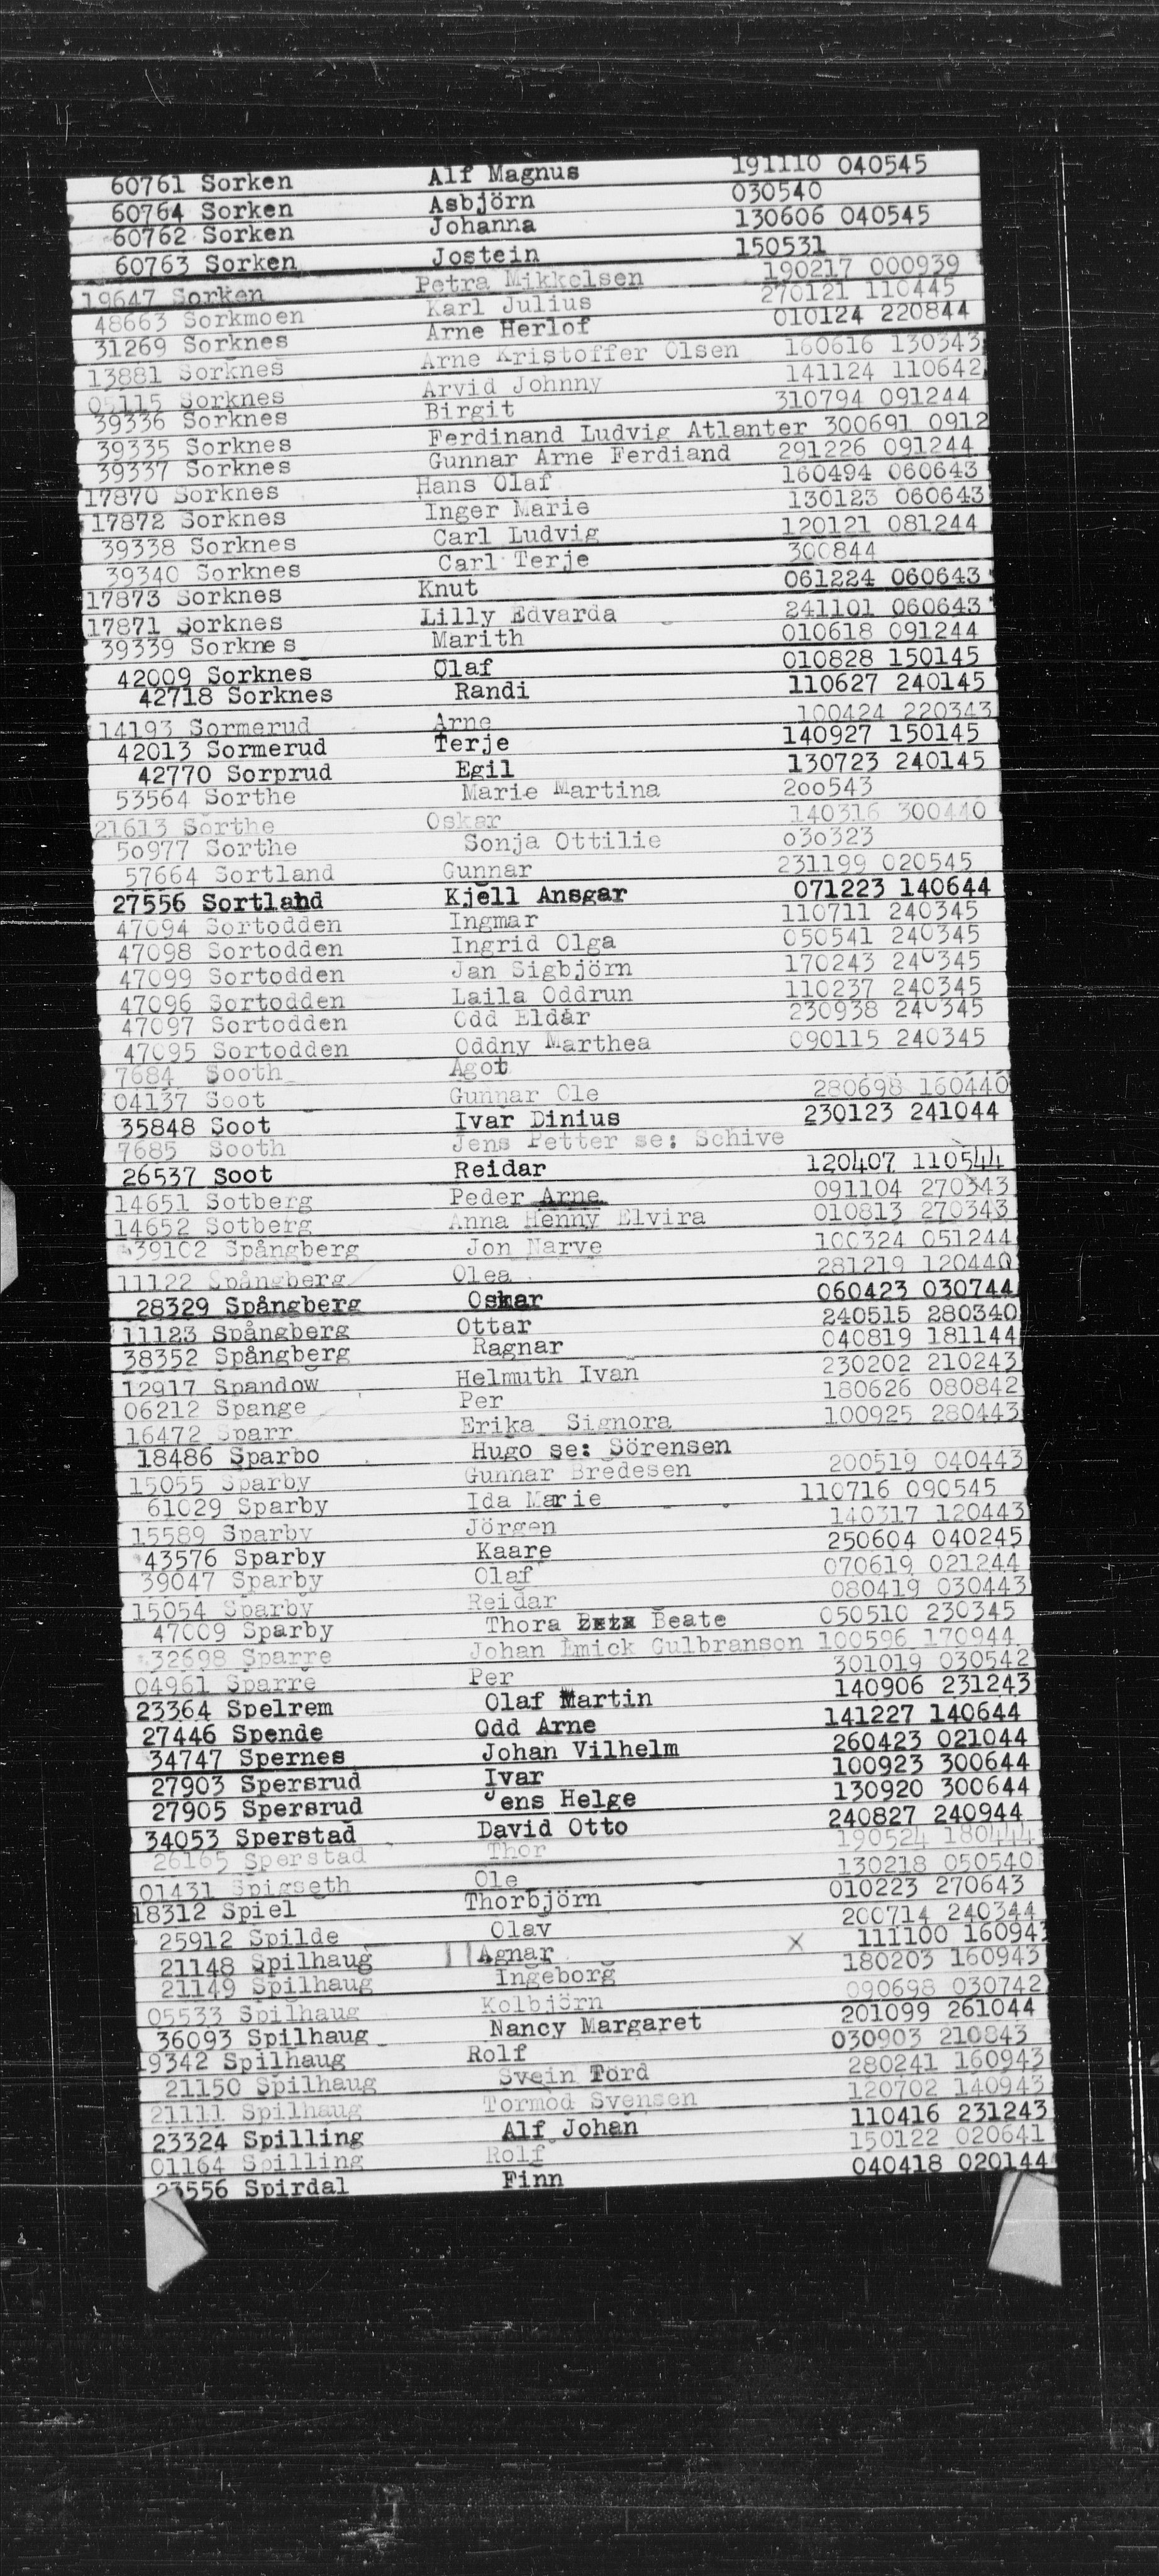 60761 Sorken Alf Magnus 191110 040545
60764 Sorken Asbjörn 030540
60762 Sorken Johanna 130606 040545
60763 Sorken Jostein 150531
19647 Sorken Petra Mikkelsen 190217 000939
48663 Sorkmoen Karl Julius 270121 110445
31269 Sorknes Arne Herlof 010124 220844
13881 Sorknes Arne Kristoffer Olsen 160616 130343
05115 Sorknes Arvid Johnny 141124 110642
39336 Sorknes Birgit 310794 091244
39335 Sorknes Ferdinand Ludvig Atlanter 300691 0912
39337 Sorknes Gunnar Arne Ferdiand 291226 091244
17870 Sorknes Hans Olaf 160494 060643
17872 Sorknes Inger Marie 130123 060643
39338 Sorknes Carl Ludvig 120121 081244
39340 Sorknes Carl Terje 300844
17873 Sorknes Knut 061224 060643
17871 Sorknes Lilly Edvarda 241101 060643
39339 Sorknes Marith 010618 091244
42009 Sorknes Olaf 010828 150145
42718 Sorknes Randi 110627 240145
14193 Sormerud Arne 100424 220343
42013 Sormerud Terje 140927 150145
42770 Sorprud Egil 130723 240145
53564 Sorthe Marie Martina 200543
21613 Sorthe Oskar 140316 300440
50977 Sorthe Sonja Ottilie 030323
57664 Sortland Gunnar 231199 020545
27556 Sortland Kjell Ansgar 071223 140644
47094 Sortodden Ingmar 110711 240345
47098 Sortodden Ingrid Olga 050541 240345
47099 Sortodden Jan Sigbjörn 170243 240345
47096 Sortodden Laila Oddrun 110237 240345
47097 Sortodden Odd Eldar 230938 240345
47095 Sortodden Oddny Marthea 090115 240345
7684 Sooth Agot
04137 Soot Gunnar Ole 280698 160440
35848 Soot Ivar Dinius 230123 241044
7685 Sooth Jens Petter se: Schive
26537 Soot Reidar 120407 110544
14651 Sotberg Peder Arne 091104 270343
14652 Sotberg Anna Henny Elvira 010813 270343
39102 Spångberg Jon Narve 100324 051244
11122 Spångberg Olea 281219 120440
28329 Spångberg Oskar 060423 030744
11123 Spångberg Ottar 240515 280340
38352 Spångberg Ragnar 040819 181144
12917 Spandow Helmuth Ivan 230202 210243
06212 Spange Per 180626 080842
16472 Sparr Erika Signora 100925 280443
18486 Sparbo Hugo se: Sörensen
15055 Sparby Gunnar Bredesen 200519 040443
61029 Sparby Ida Marie 110716 090545
15589 Sparby Jörgen 140317 120443
43576 Sparby Kaare 250604 040245
39047 Sparby Olaf 070619 021244
15054 Sparby Reidar 080419 030443
47009 Sparby Thora Beate 050510 230345
32698 Sparre Johan Emick Gulbranson 100596 170944
04961 Sparre Per 301019 030542
23364 Spelrem Olaf Martin 140906 231243
27446 Spende Odd Arne 141227 140644
34747 Spernes Johan Vilhelm 260423 021044
27903 Spersrud Ivar 100923 300644
27905 Spersrud Jens Helge 130920 300644
34053 Sperstad David Otto 240827 240944
26165 Sperstad Thor 190524 180444
01431 Spigseth Ole 130218 050540
18312 Spiel Thorbjörn 010223 270643
25912 Spilde Olav 200714 240344
21148 Spilhaug Agnar X 111100 160943
21149 Spilhaug Ingeborg 180203 160943
05533 Spilhaug Kolbjörn 090698 030742
36093 Spilhaug Nancy Margaret 201099 261044
19342 Spilhaug Rolf 030903 210843
21150 Spilhaug Svein Tord 280241 160943
21111 Spilhaug Tormod Svensen 120702 140943
23324 Spilling Alf Johan 110416 231243
01164 Spilling Rolf 150122 020641
23556 Spirdal Finn 040418 020144